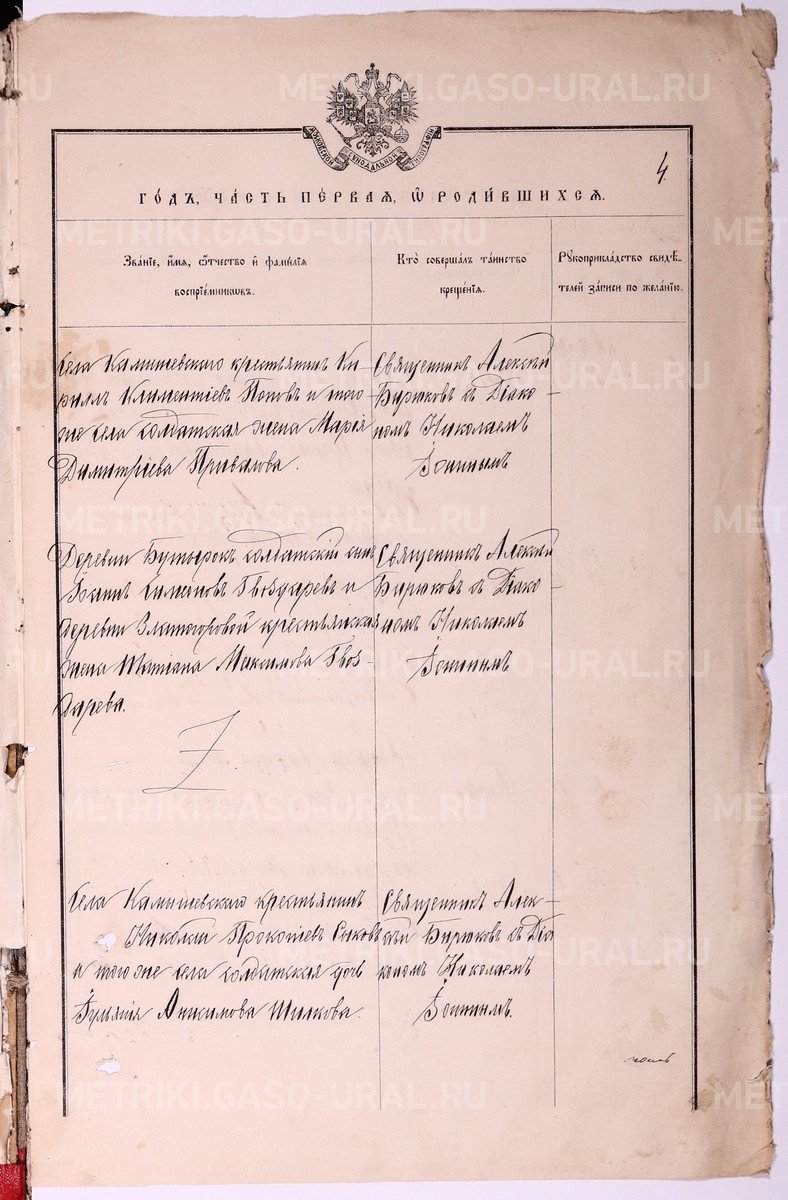 METRIKI.GASO-URAL.RU
МОСКОВСКОЙ СѴНОДАЛЬНОЙ ТИПОГРАФІИ
4
ГО́ДЪ, ЧА́СТЬ ПЕ́РВАЯ, Ѡ҆ РОДИ́ВШИХСЯ.
Зва́нїе, и҆́мя, ѻ҆́тчество и҆ фами́лїя
воспрїе́мникѡвъ.
Кто̀ соверша́лъ та́инство
креще́нїя.
Рꙋкоприкла́дство свидѣ́-
телей за́писи по жела́нїю.
Села Камышевскаго крестьянинъ Ки-
риллъ Климентіевъ Поповъ и того-
же села солдатская жена Марія
Димитріева Привалова.
Священникъ Алексій
Бирюковъ съ Діако-
номъ Николаемъ
Іонинымъ
Деревни Бутырокъ солдатскій сынъ
Іоаннъ Симеоновъ Гвоздаревъ и
деревни Златогоровой крестьянская
жена Татіана Максимова Гвоз-
дарева.
Священникъ Алексій
Бирюковъ съ Діако-
номъ Николаемъ
Іонинымъ
Села Камышевскаго крестьянинъ
Николай Прокопіевъ Сысковъ
и того же села солдатская дочь
Іуліанія Анисимова Шилкова.
Священникъ Алек-
сѣй Бирюковъ съ Діа
кономъ Николаемъ
Іонинымъ.